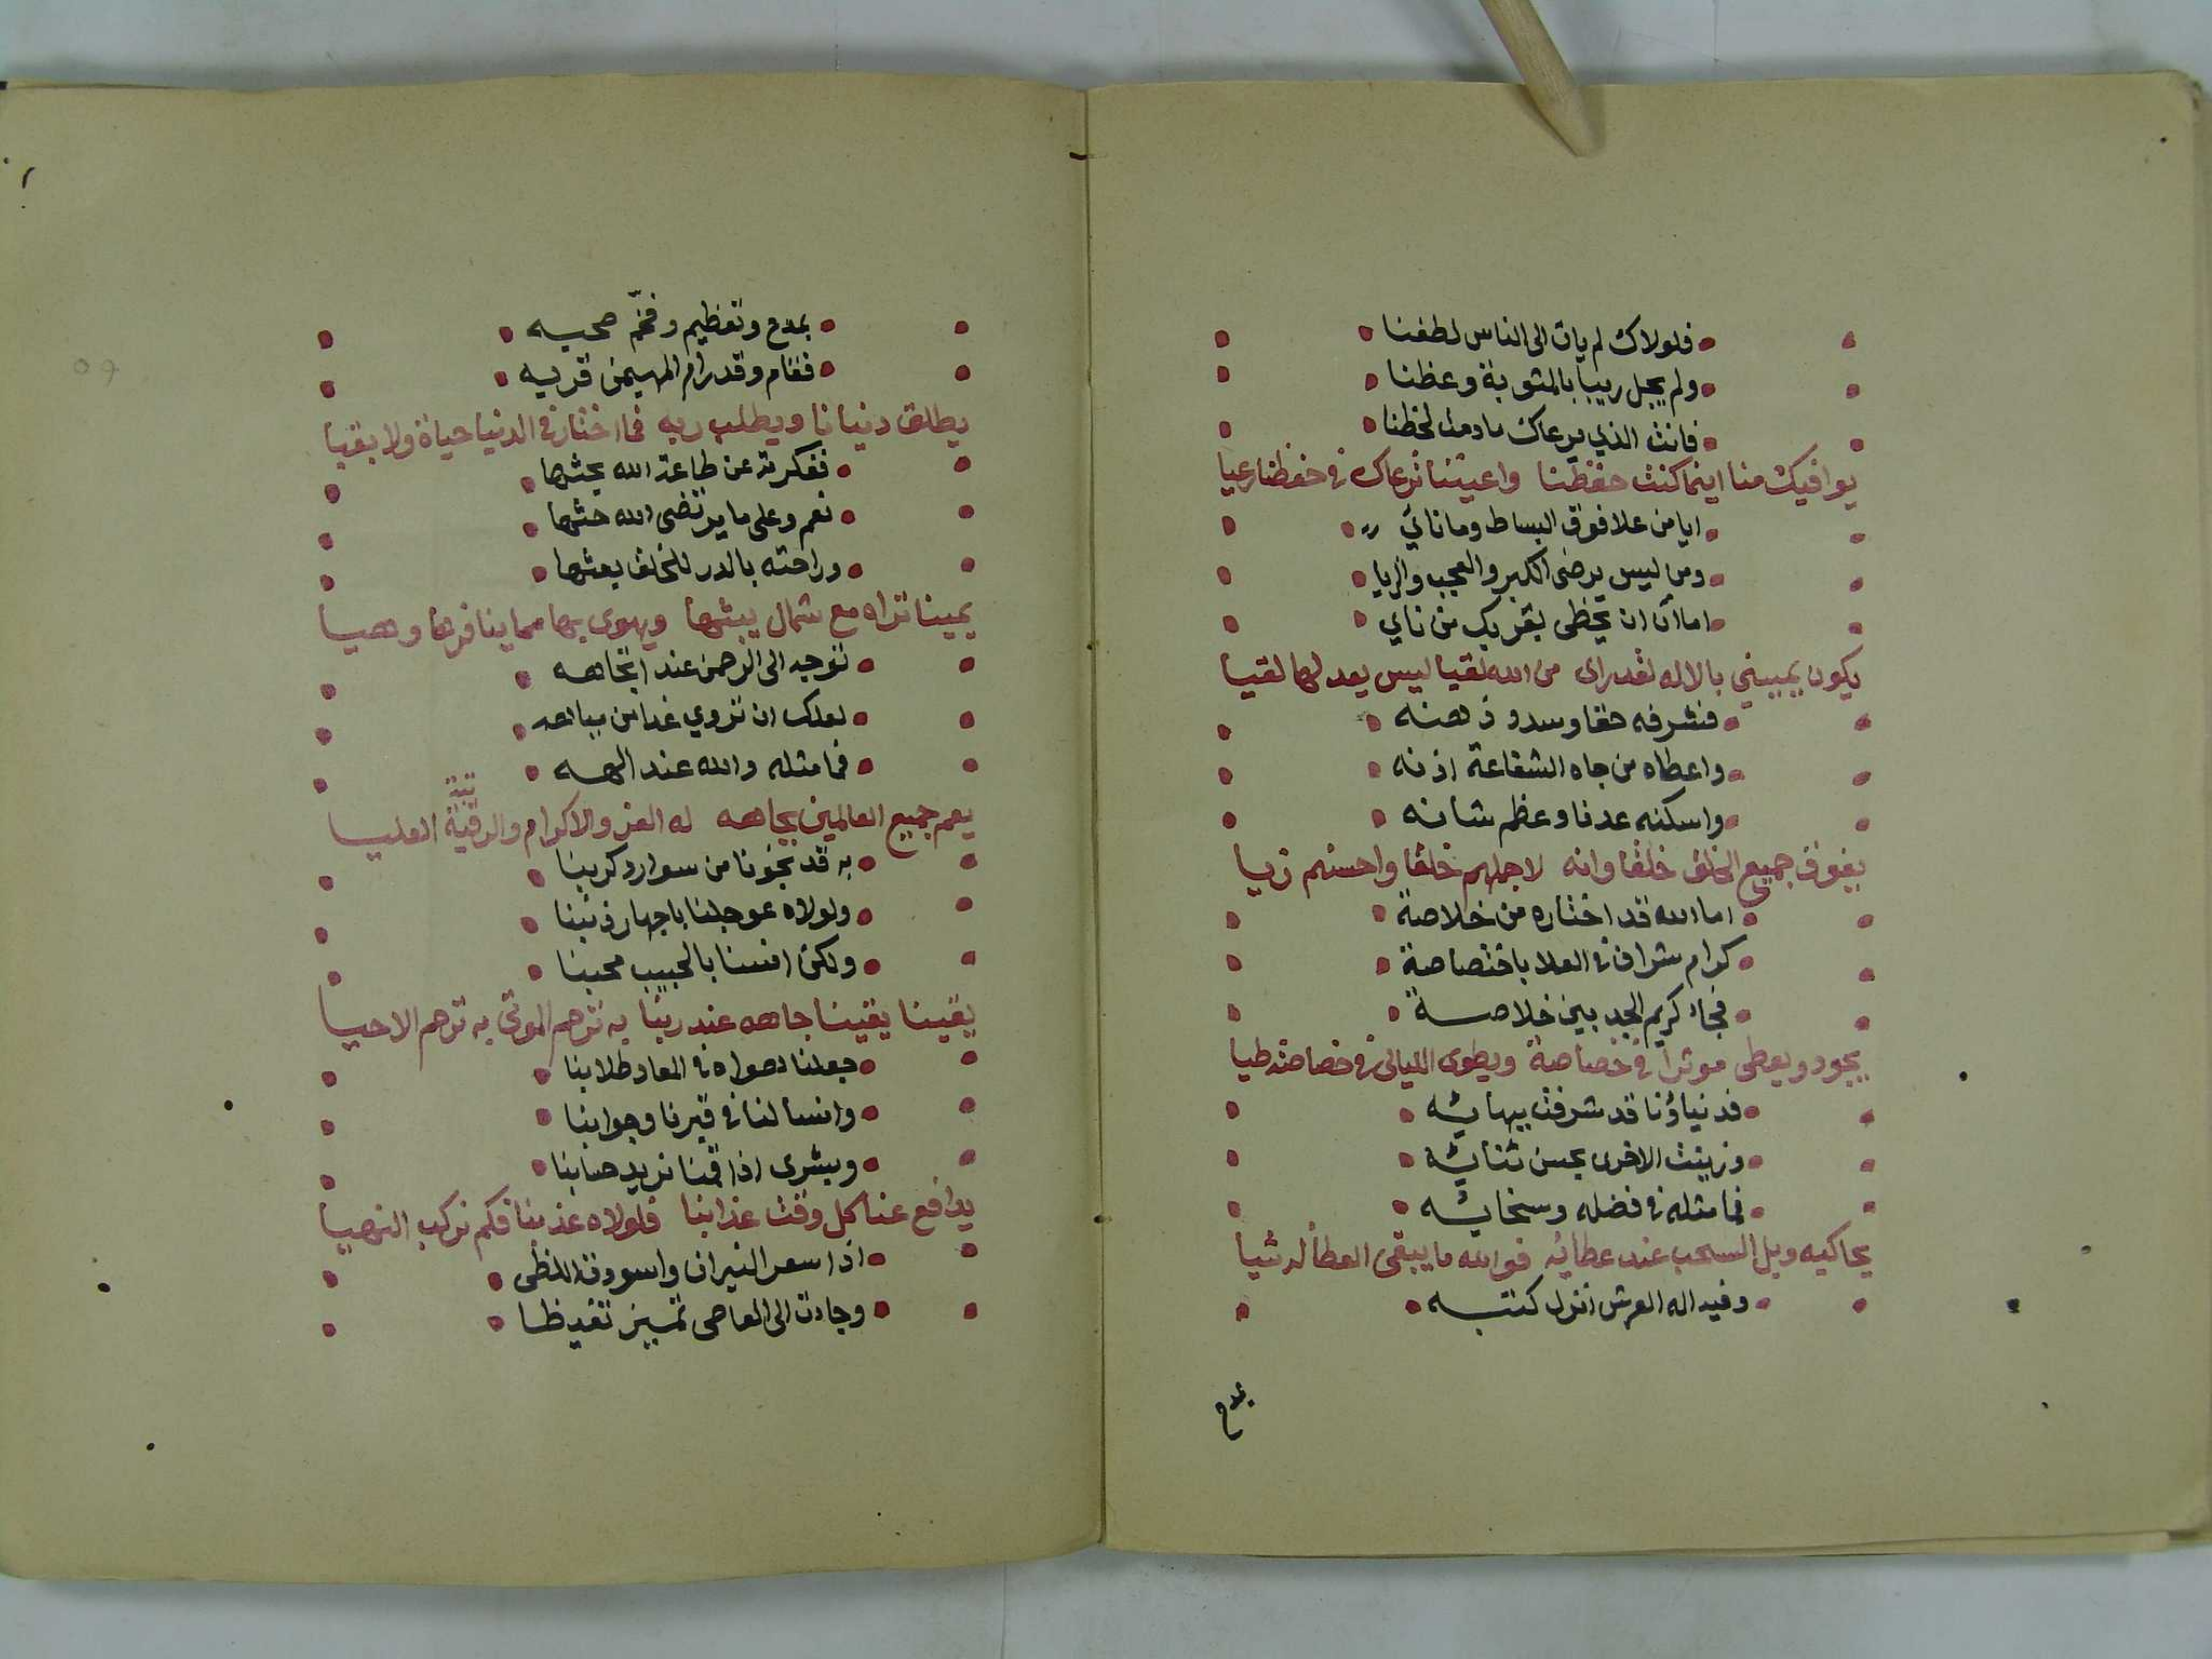 فلولاك لم يات الى الناس لطفنا
ولم يجل ريبا بالمثوبة وعظنا
فانت الذي يرعاك مادمت لحظنا
يوافيك منا اينما كنت حفظنا واعيننا ترعاك في حفظنا رعيا
ايا من علا فوق البساط وما نائي
ومن ليس يرضى الكبر والعجب والريا
اما آن ان يحظى بقربك من نائي
يكون يمينى بالاله لقد راى من الله لقيا ليس يعدلها لقيا
فشرفه حقا وسدد ذهنه
واعطاه من جاه الشفاعة اذنه
واسكنه عدنا وعظم شانه
يفوق جميع الخلق خلقا وانه لاجملهم خلقا واحسنهم زيا
اما الله قد اختاره من خلاصة
كرام شراف في العلا باختصاصة
فجاء كريم الجد بين خلاصة
يجود ويعطى موثرا في خصاصة ويطوى الليالى في خصاصته طيا
فدنياؤنا قد شرفت ببهائه
وزينت الاخرى بحسن ثنائه
فما مثله في فضله وسخائه
يحاكيه وبل السحب عند عطائه فوالله ما يبقى العطا له شيا
وفيه اله العرش انزل كتبه
بمدح
بمدح وتعظيم وفخّم صحبه
فقام وقد رام المهيمن قربه
يطلق دنيانا ويطلب ربه فما اختار في الدنيا حياة ولا بقيا
ففكرته عن طاعة الله يحثها
نعم وعلى ما يرتضى الله حثها
وراحته بالدر للخلق بعثها
يمينا تراه مع شمال يبثها ويهوى بها مما ينافرها وهيا
توجه الى الرحمن عند اتجاهه
لعلك ان تروي غدا من مياهه
فما مثله والله عند الهه
يعم جميع العالمين بجاهه له العز والاكرام والرتبة العليا
به قد نجونا من سوارد كربنا
ولولاه عوجلنا باجهار ذنبنا
ولكن انسنا بالحبيب محبنا
يقينا يقينا جاهه عند ربنا به ترحم الموتى به ترحم الاحيا
جعلنا هواه في المعاد طلابنا
وانسا لنا في قبرنا وجوابنا
وبشرى اذا قمنا نريد حسابنا
يدافع عنا كل وقت عذابنا فلولاه عذبنا فكم نركب النهيا
اذا سعر النيران واسودت اللظى
وجادت الى العاصى تميز تغيظا